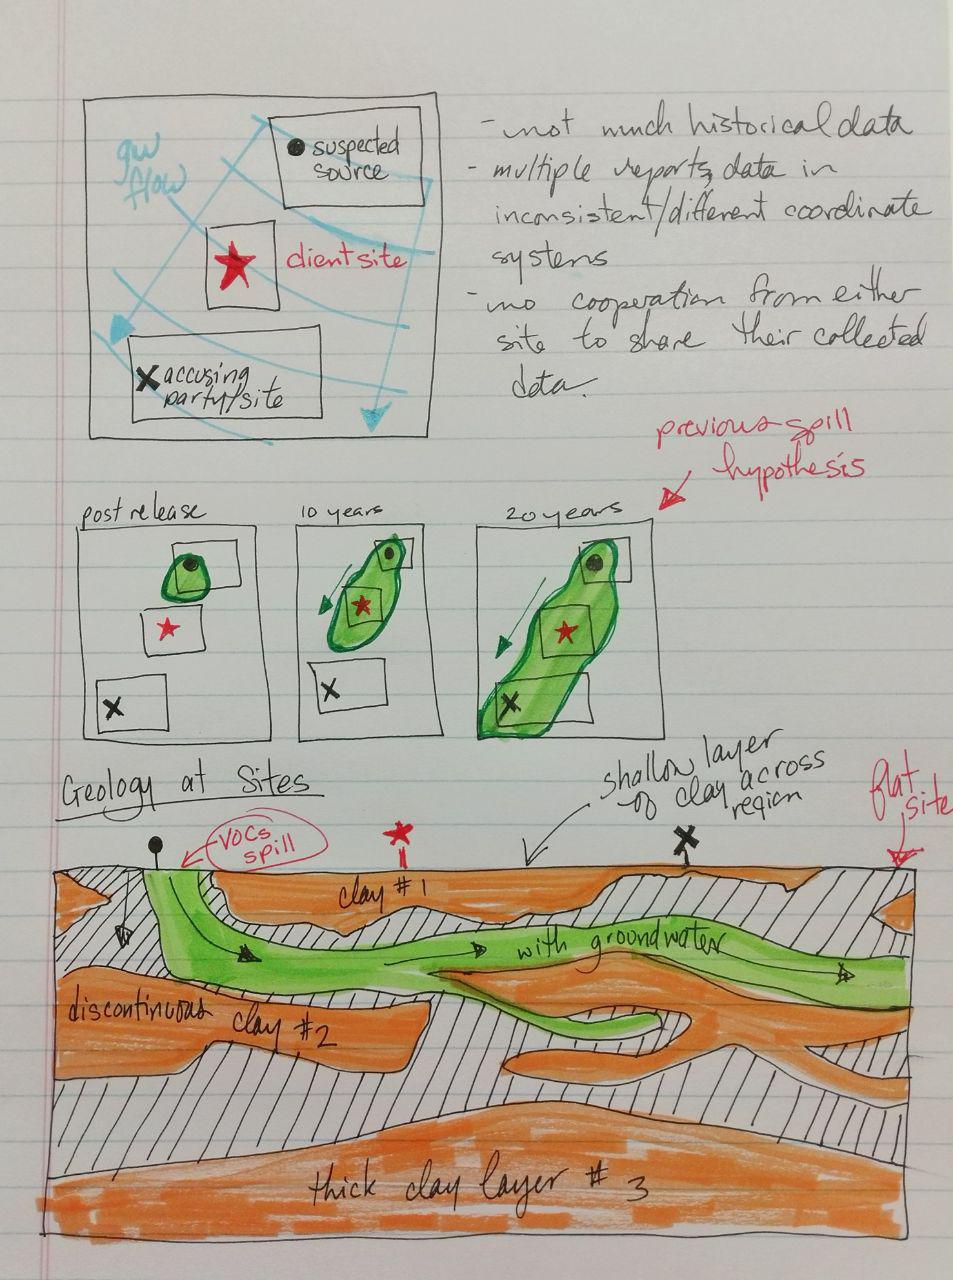 gw
flow
suspected
source
client site
accusing
party/site
- not much historical data
- multiple reports, data in
inconsistent/different coordinate
systems
- no cooperation from either
site to share their collected
data.
previous spill
hypothesis
post release
10 years
20 years
Geology at Sites
shallow layer
of clay across
region
flat
site
VOCs
spill
clay #1
with groundwater
discontinuous clay #2
thick clay layer #3